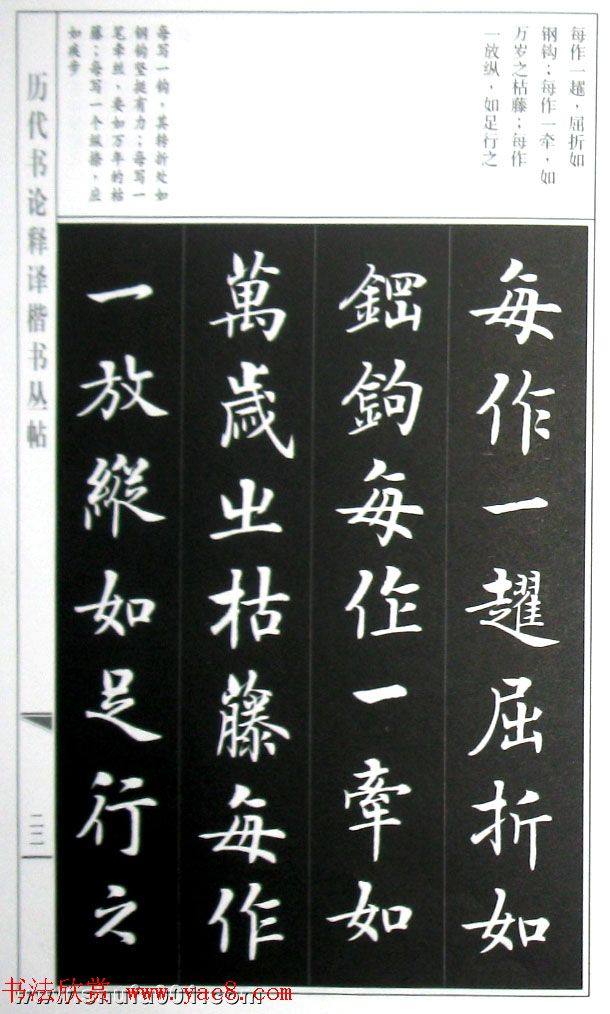 每作一趯，屈折如
钢钩；每作一牵，如
万岁之枯藤；每作
一放纵，如足行之
每写一钩，其转折处如
钢钩坚挺有力；每写一
笔牵丝，要如万年的枯
藤；每写一个纵捺，应
如疾步
每作一趯屈折如
鋼鉤每作一牽如
萬歲之枯藤每作
一放縱如足行之
历代书论释译楷书丛帖
二二
书法欣赏 www.yac8.com